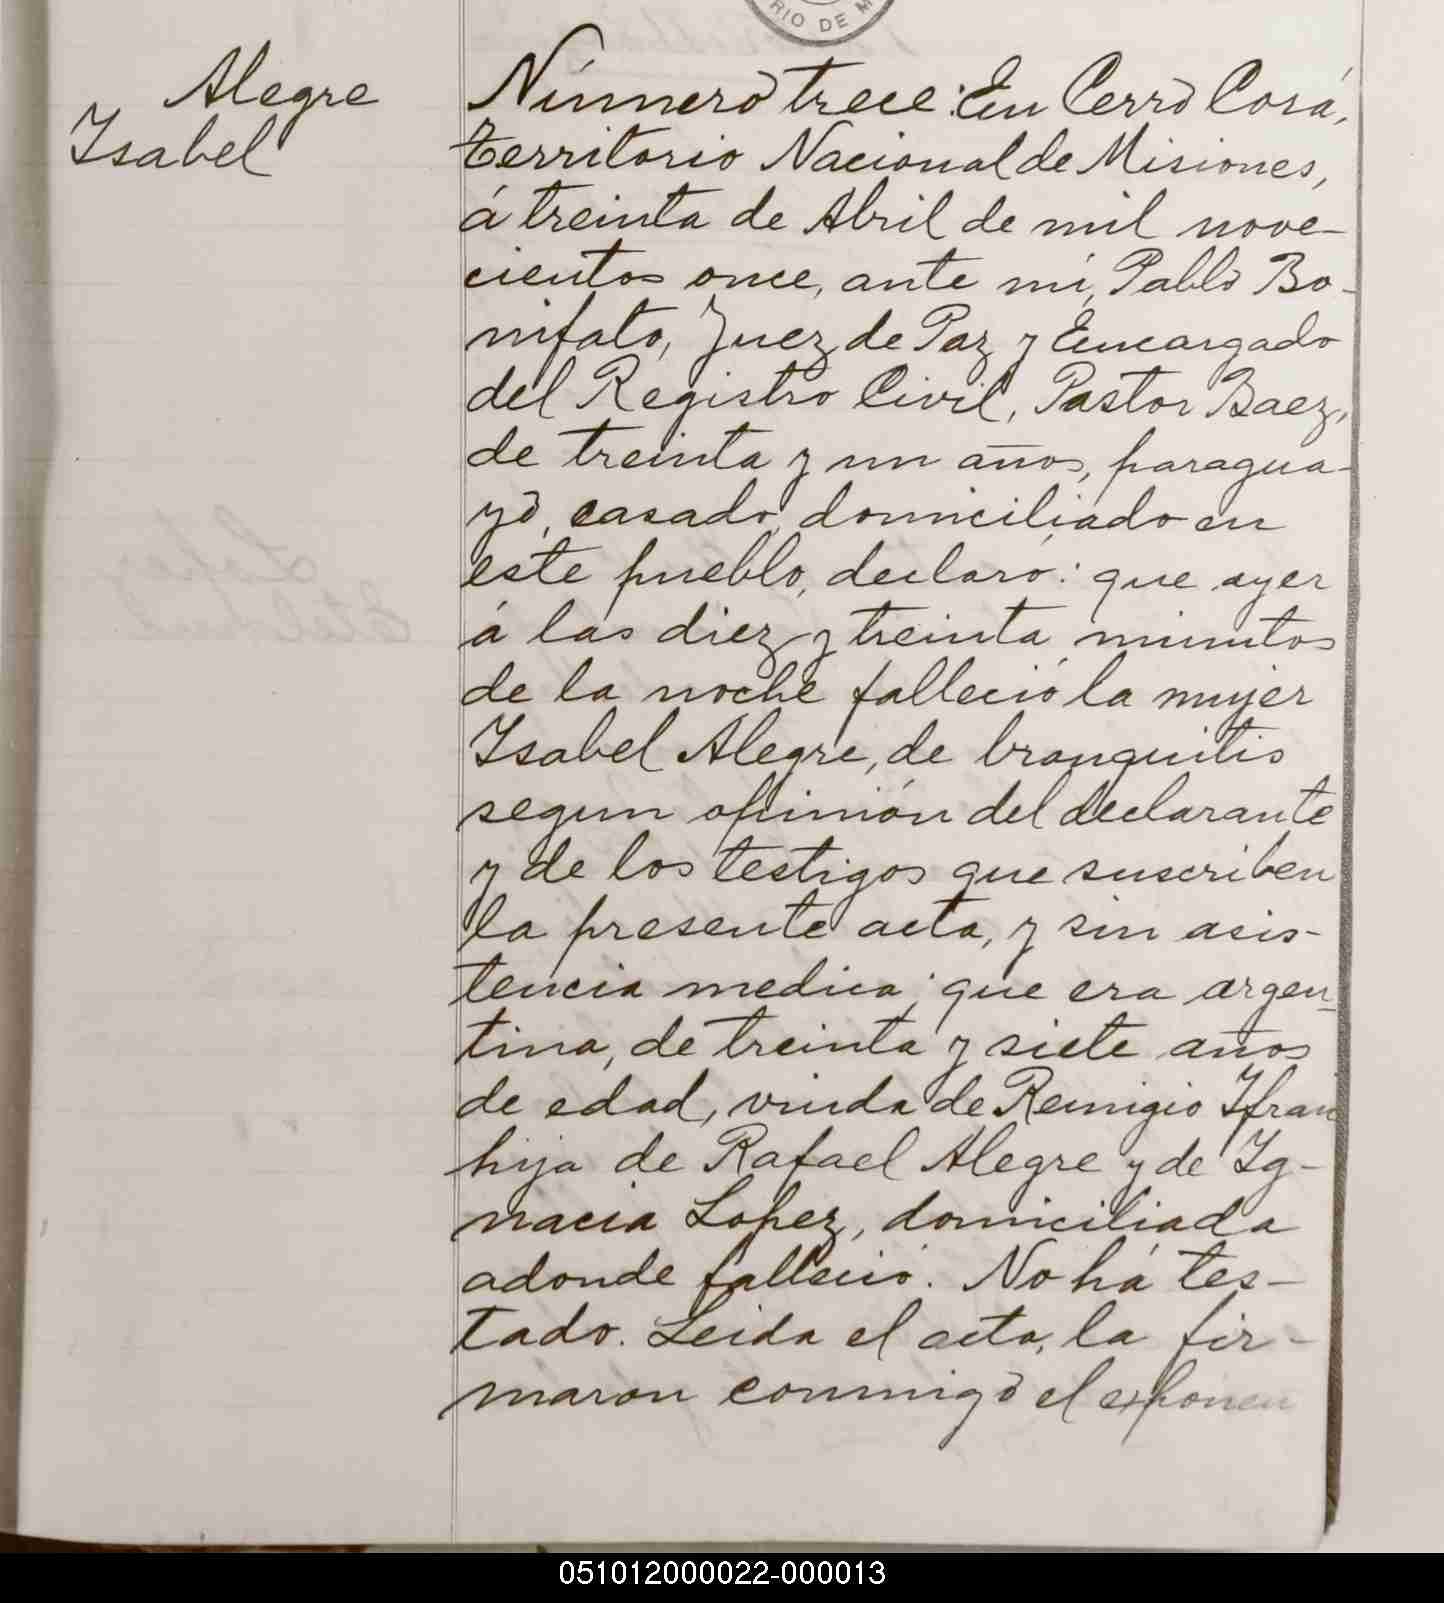 RIO DE M
Alegre
Isabel
Número trece: En Cerro Corá,
territorio Nacional de Misiones,
á treinta de Abril de mil nove-
cientos once, ante mí, Pablo Bo-
nifato, Juez de Paz y Encargado
del Registro Civil, Pastor Baez,
de treinta y un años, paragua-
yo, casado, domiciliado en
este pueblo, declaró: que ayer
á las diez y treinta minutos
de la noche falleció la mujer
Isabel Alegre, de bronquitis
segun opinión del declarante
y de los testigos que suscriben
la presente acta, y sin asis-
tencia medica; que era argen-
tina, de treinta y siete años
de edad, viuda de Remigio Ifran
hija de Rafael Alegre y de Ig-
nacia Lopez, domiciliada
adonde falleció. No há tes-
tado. Leida el acta, la fir-
maron conmigo el exponen
051012000022-000013